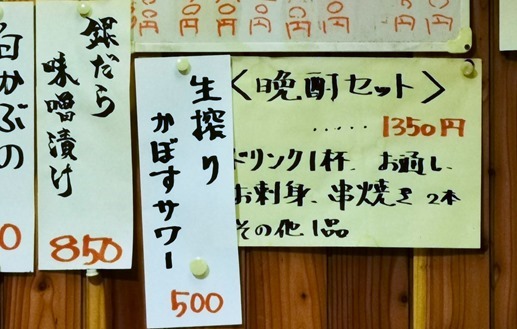 〈晩酌セット〉
‥‥‥1350円
ドリンク1杯、お通し、
お刺身、串焼き2本
その他1品
生搾り
かぼすサワー
500
銀だら
味噌漬け
850
白かぶの
0